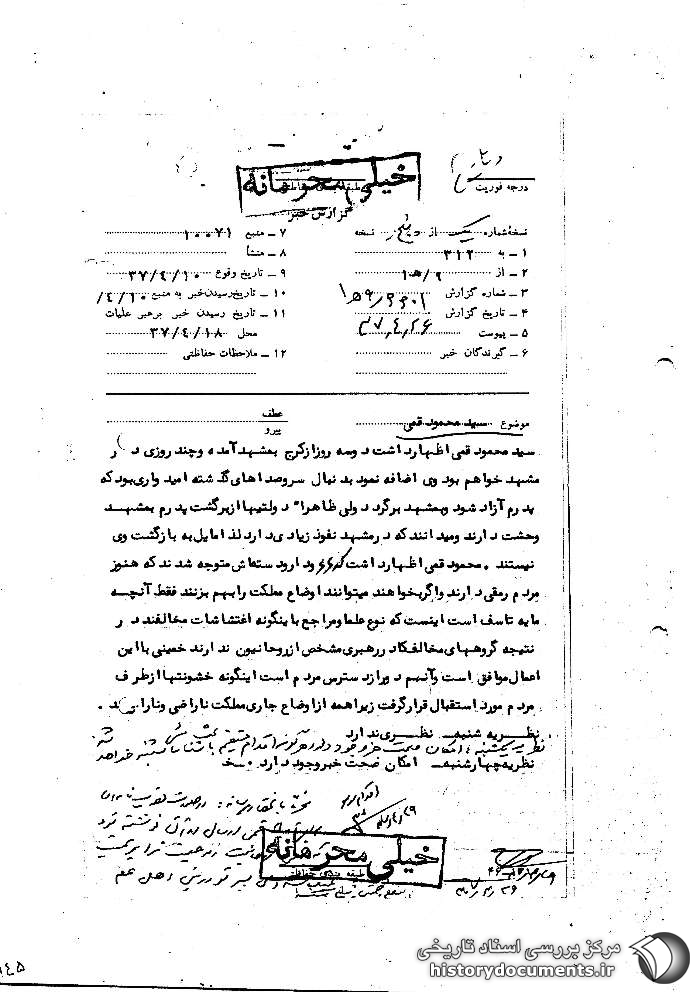 خیلی محرمانه
درجه فوریت
گزارش خبر
نسخه شماره یک از پنج نسخه
۱ـ به ۳۱۲
۲ـ از ۹/ﻫ۱
۳ـ شماره گزارش
۴ـ تاریخ گزارش ۳۷/۴/۲۶
۵ـ پیوست
۶ـ گیرندگان خبر
۷ـ منبع ۱۰۰۷۱
۸ـ منشأ
۹ـ تاریخ وقوع ۳۷/۴/۱۰
۱۰ـ تاریخ رسیدن خبر به منبع ۴/۱۰/
۱۱ـ تاریخ رسیدن خبر برهبر عملیات
محل ۳۷/۴/۱۸
۱۲ـ ملاحظات حفاظتی
موضوع سید محمود قمی
عطف
پیرو
سید محمود قمی اظهارداشت دوسه روزازکرج بمشهدآمده وچند روزی در
مشهد خواهم بود وی اضافه نمود بدنبال سروصداهای گذشته امیدواری بود که
پدرم آزاد شود وبمشهد برگردد ولی ظاهراً دولتیها ازبرگشت پدرم بمشهد
وحشت دارند ومیدانند که درمشهد نفوذ زیادی دارد لذا مایل به بازگشت وی
نیستند . محمود قمی اظهارداشت که ودارودسته‌اش متوجه شدند که هنوز
مردم رمقی دارند واگربخواهند میتوانند اوضاع مملکت رابهم بزنند فقط آنچه
مایه تاسف است اینست که نوع علما ومراجع با اینگونه اغتشاشات مخالفند در
نتیجه گروههای مخالف کادر رهبری مشخص ازروحانیون ندارند خمینی با این
اعمال موافق است وآنهم دورازدسترس مردم است اینگونه خشونتها ازطرف
مردم مورد استقبال قرارگرفت زیرا همه ازاوضاع جاری مملکت ناراضی وناراحتند .
نظریه شنبه ـ نظری ندارد
نظریه یکشنبه ـ امکان صحت خبر وجود دارد هرگونه اقدام مستقیم باشناسائی شنبه خواهد شد
نظریه چهارشنبه ـ امکان صحت خبروجود دارد .
خیلی محرمانه
۹۴۵
مرکز بررسی اسناد تاریخی
historydocuments.ir